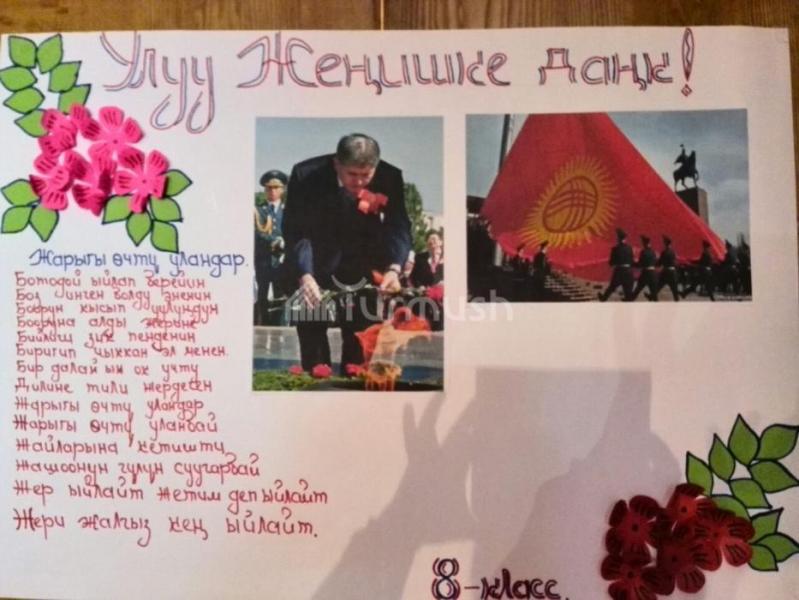 Улуу Жеңишке даңк!
Жарыгы өчтү уландар.
Ботодой ыйлап берейин
Боз инген болду эненин
Боорун кысып уулундун
Бооруна алды жерине
Бийлаш зик пенденин
Биригип чыккан эл менен.
Бир далай ын ок учту
Дилине тили жердеген
Жарыгы өчтү уландар
Жарыгы өчтү уланбай
Жайларына кетишти
Жашоонун гүлүн суугарбай
Жер ыйлайт жетим деп ыйлайт
Жери жалгыз кең ыйлайт.
Turmush
8-класс.